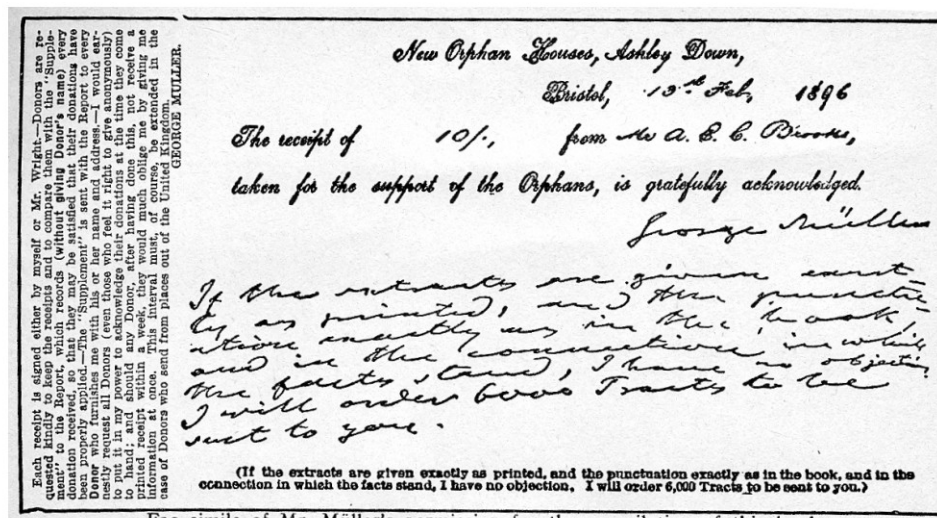 Each receipt is signed either by myself or Mr. Wright.—Donors are re-
quested kindly to keep the receipts and to compare them with the "Supple-
ment" to the Report, which records (without giving Donor's name) every
donation received, so that they may be satisfied that their donations have
been properly applied.—The "Supplement" is sent with the Report to every
Donor who furnishes me with his or her name and address.—I would ear-
nestly request all Donors (even those who feel it right to give anonymously)
to put it in my power to acknowledge their donations at the time they come
to hand; and should any Donor, after having done this, not receive a
printed receipt within a week, they would much oblige me by giving me
information at once. This interval must, of course, be extended in the
case of Donors who send from places out of the United Kingdom.
GEORGE MULLER.
New Orphan Houses, Ashley Down,
Bristol, 13th Feb, 1896
The receipt of 10/-, from Mr A. E. C. Brooks,
taken for the support of the Orphans, is gratefully acknowledged.
George Müller
If the extracts are given exact
ly as printed, and the punctu
ation exactly as in the book,
and in the connection in which
the facts stand, I have no objection
I will order 6000 Tracts to be
sent to you.
(If the extracts are given exactly as printed, and the punctuation exactly as in the book, and in the
connection in which the facts stand, I have no objection. I will order 6,000 Tracts to be sent to you.)